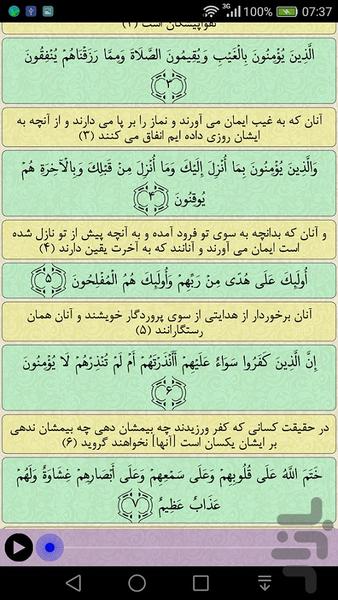 3G 100% 07:37
تقواپیشگان است (۲)
الَّذِينَ يُؤْمِنُونَ بِالْغَيْبِ وَيُقِيمُونَ الصَّلَاةَ وَمِمَّا رَزَقْنَاهُمْ يُنْفِقُونَ
﴿۳﴾
آنان که به غیب ایمان می آورند و نماز را بر پا می دارند و از آنچه به
ایشان روزی داده ایم انفاق می کنند (۳)
وَالَّذِينَ يُؤْمِنُونَ بِمَا أُنْزِلَ إِلَيْكَ وَمَا أُنْزِلَ مِنْ قَبْلِكَ وَبِالْآخِرَةِ هُمْ
يُوقِنُونَ ﴿۴﴾
و آنان که بدانچه به سوی تو فرود آمده و به آنچه پیش از تو نازل شده
است ایمان می آورند و آنانند که به آخرت یقین دارند (۴)
أُولَئِكَ عَلَى هُدًى مِنْ رَبِّهِمْ وَأُولَئِكَ هُمُ الْمُفْلِحُونَ ﴿۵﴾
آنان برخوردار از هدایتی از سوی پروردگار خویشند و آنان همان
رستگارانند (۵)
إِنَّ الَّذِينَ كَفَرُوا سَوَاءٌ عَلَيْهِمْ أَأَنْذَرْتَهُمْ أَمْ لَمْ تُنْذِرْهُمْ لَا يُؤْمِنُونَ
﴿۶﴾
در حقیقت کسانی که کفر ورزیدند چه بیمشان دهی چه بیمشان ندهی
بر ایشان یکسان است [آنها] نخواهند گروید (۶)
خَتَمَ اللَّهُ عَلَى قُلُوبِهِمْ وَعَلَى سَمْعِهِمْ وَعَلَى أَبْصَارِهِمْ غِشَاوَةٌ وَلَهُمْ
عَذَابٌ عَظِيمٌ ﴿۷﴾
بازار